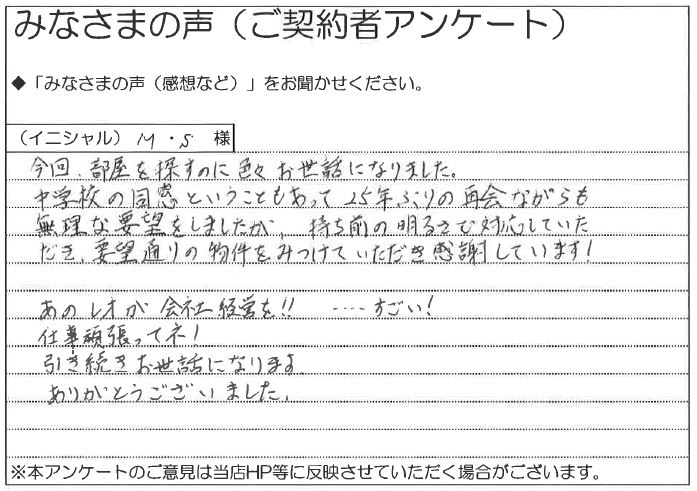 みなさまの声（ご契約者アンケート）
◆「みなさまの声（感想など）」をお聞かせください。
（イニシャル）M・S 様
今回、部屋を探すのに色々お世話になりました。
中学校の同窓ということもあって25年ぶりの再会ながらも
無理な要望をしましたが、持ち前の明るさで対応していた
だき、要望通りの物件をみつけていただき感謝しています!
あのレオが会社経営を!! ‥‥すごい!
仕事頑張ってネ!
引き続きお世話になります
ありがとうございました。
※本アンケートのご意見は当店HP等に反映させていただく場合がございます。